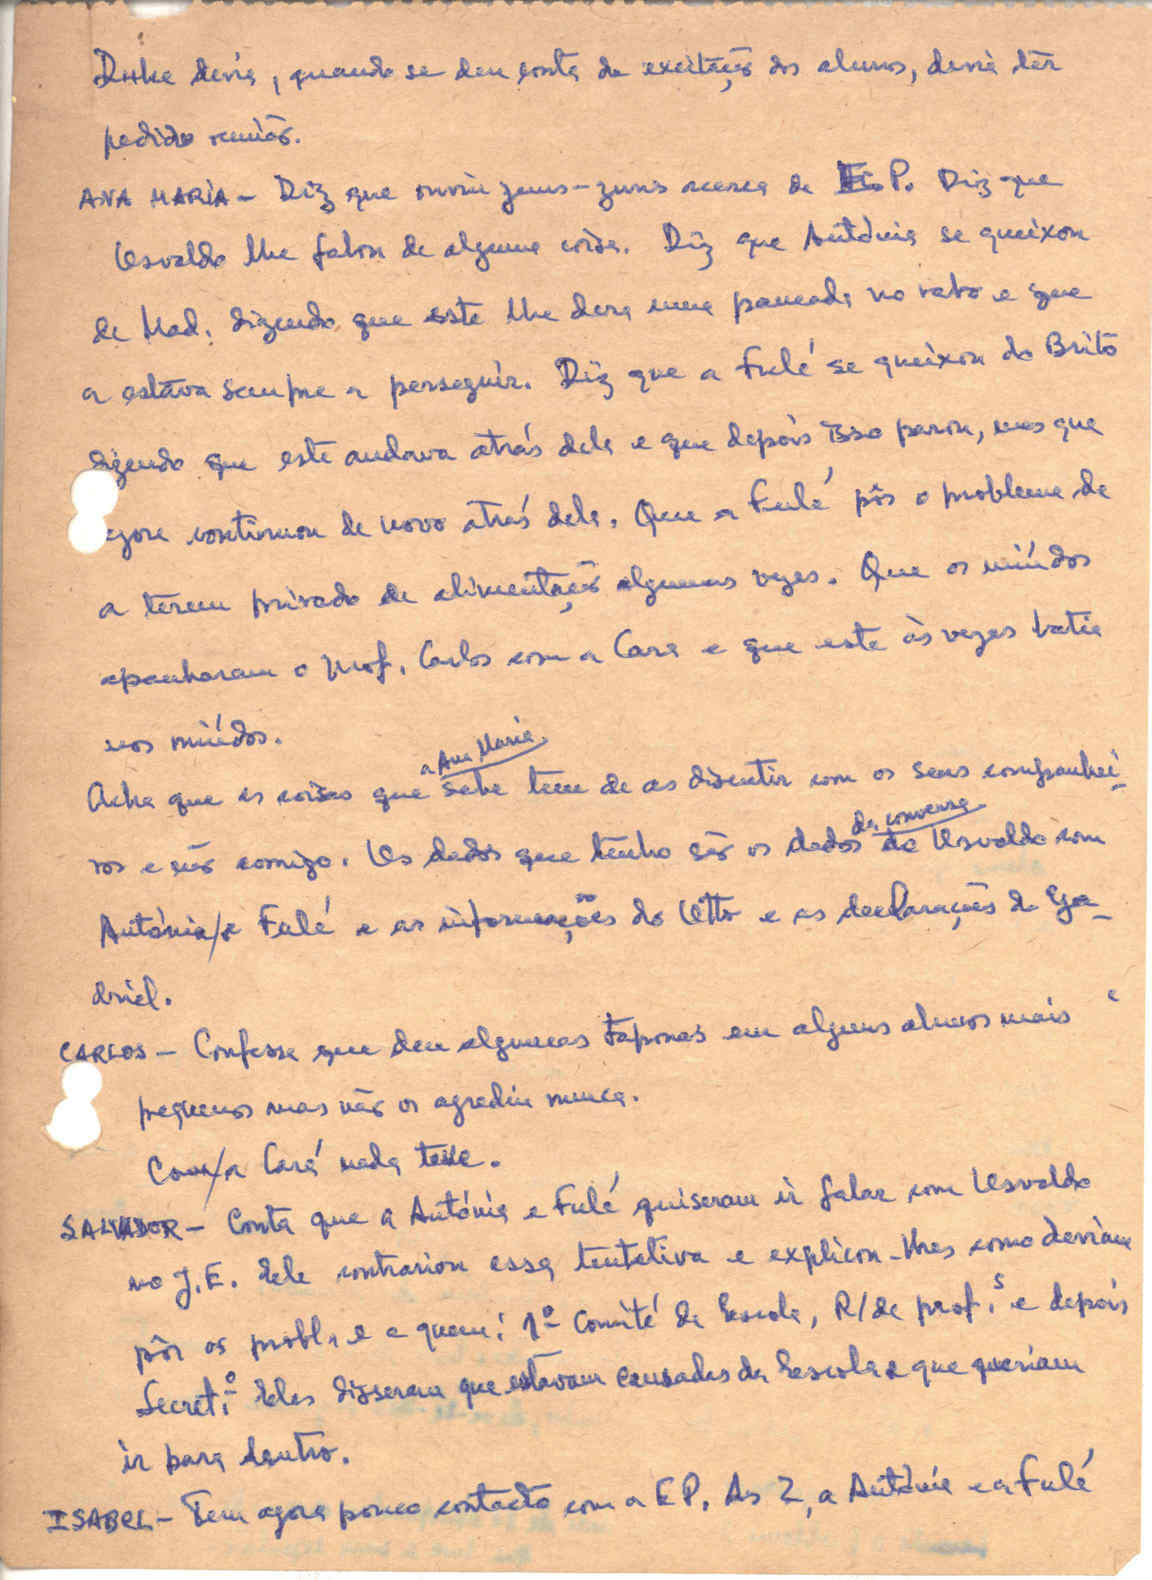 devia, quando se deu conta da excitação dos alunos, devia ter
pedido reunião.
ANA MARIA - Diz que ouviu zuns-zuns acerca da E.P. Diz que
Osvaldo lhe falou de alguma coisa. Diz que Antónia se queixou
de Mad. dizendo que este lhe dera uma pancada no rabo e que
a estava sempre a perseguir. Diz que a Fulé se queixou do Brito
dizendo que este andava atrás dela e que depois isso parou, mas que
agora continuou de novo atrás dela. Que a Fulé pôs o problema de
a terem privado de alimentação algumas vezes. Que os miúdos
apanharam o prof. Carlos com a Cara e que este às vezes batia
nos miúdos.
Acha que as coisas que a Ana Maria sabe tem de as discutir com os seus companhei-
ros e não comigo. Os dados que tenho são os dados da conversa do Osvaldo com
Antónia/e Fulé e as informações do Otto e as declarações do Ga-
briel.
CARLOS - Confessa que deu algumas taponas em alguns alunos mais
pequenos mas não os agrediu nunca.
Com/a Cará nada teve.
SALVADOR - Conta que a Antónia e Fulé quiseram ir falar com Osvaldo
no J.E. Ele contrariou essa tentativa e explicou-lhes como deviam
pôr os probl. e a quem: 1º Comité da Escola, R/de prof.s e depois
Secret.º Elas disseram que estavam cansadas da Escola e que queriam
ir para dentro.
ISABEL - Tem agora pouco contacto com a E.P. As 2, a Antónia e a Fulé